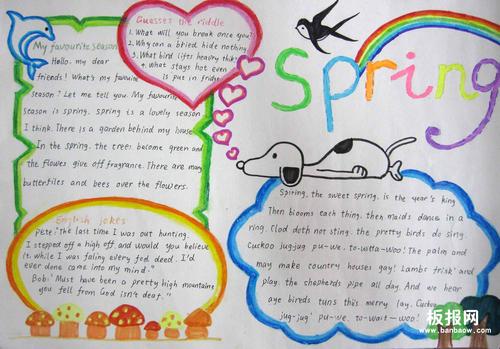 Spring
Guesses the riddle
1. What will you break once you?
2. Why can a bried hide nothing.
3. What bird lifts headvy thik?
4. What stays hot even
is put in fridge
My favourite season
Hello. my dear
friends! What's my favouite
season? Let me tell you. My favourite
season is spring. spring is a lovely season
I think. There is a garden behind my house
In the spring. the trees become green and
the flowers give off fragrance. There are many
butterflies and bees over the flowers.
English jokes
Pete: "The last time I was out hunting.
I stepped off a high off and would you believe
it. while I was faling every fed deed. I'd
ever done came into my mind."
Bob: "Must have been a pretty high mountaine
you fell from God isn't deaf."
Spiring. the sweet spring. is the year's king
Then blooms each thing. then maids dance in a
ring. Clod doth not sting. the pretty birds do sing.
Cuckoo jug-jug pu-we. to-witta-woo! The palm and
may make country houses gay! Lambs frisk' and
play. the shepherds pipe all day. And we hear
aye bireds tuns this merry lay. Cuckoo
jug-jug' pu-we. to-wait-woo!
板报网
www.banbaow.com